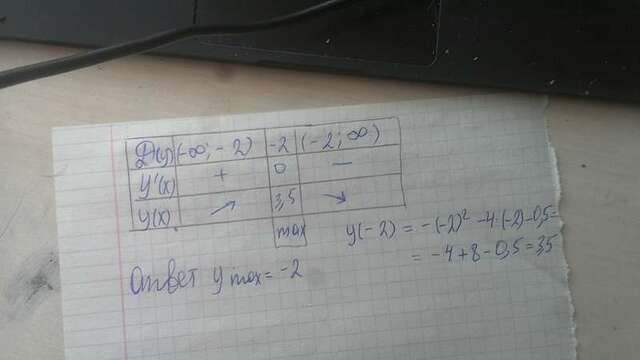 D(y) (-∞; -2) -2 (-2; ∞)
y'(x) + 0 −
y(x) ↗ 3,5 ↘
max
y(-2) = -(-2)² - 4·(-2) - 0,5 =
= -4 + 8 - 0,5 = 3,5
Ответ y max = -2